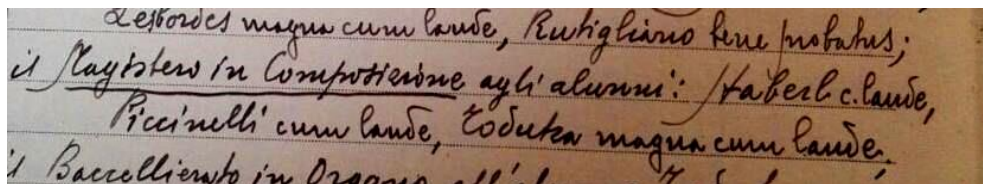 Desbordes magna cum laude, Rutigliano bene probatus;
il Magistero in Composizione agli alunni: Haberl c. laude,
Piccinelli cum laude, Todutza magna cum laude.
il Baccellierato in Organo